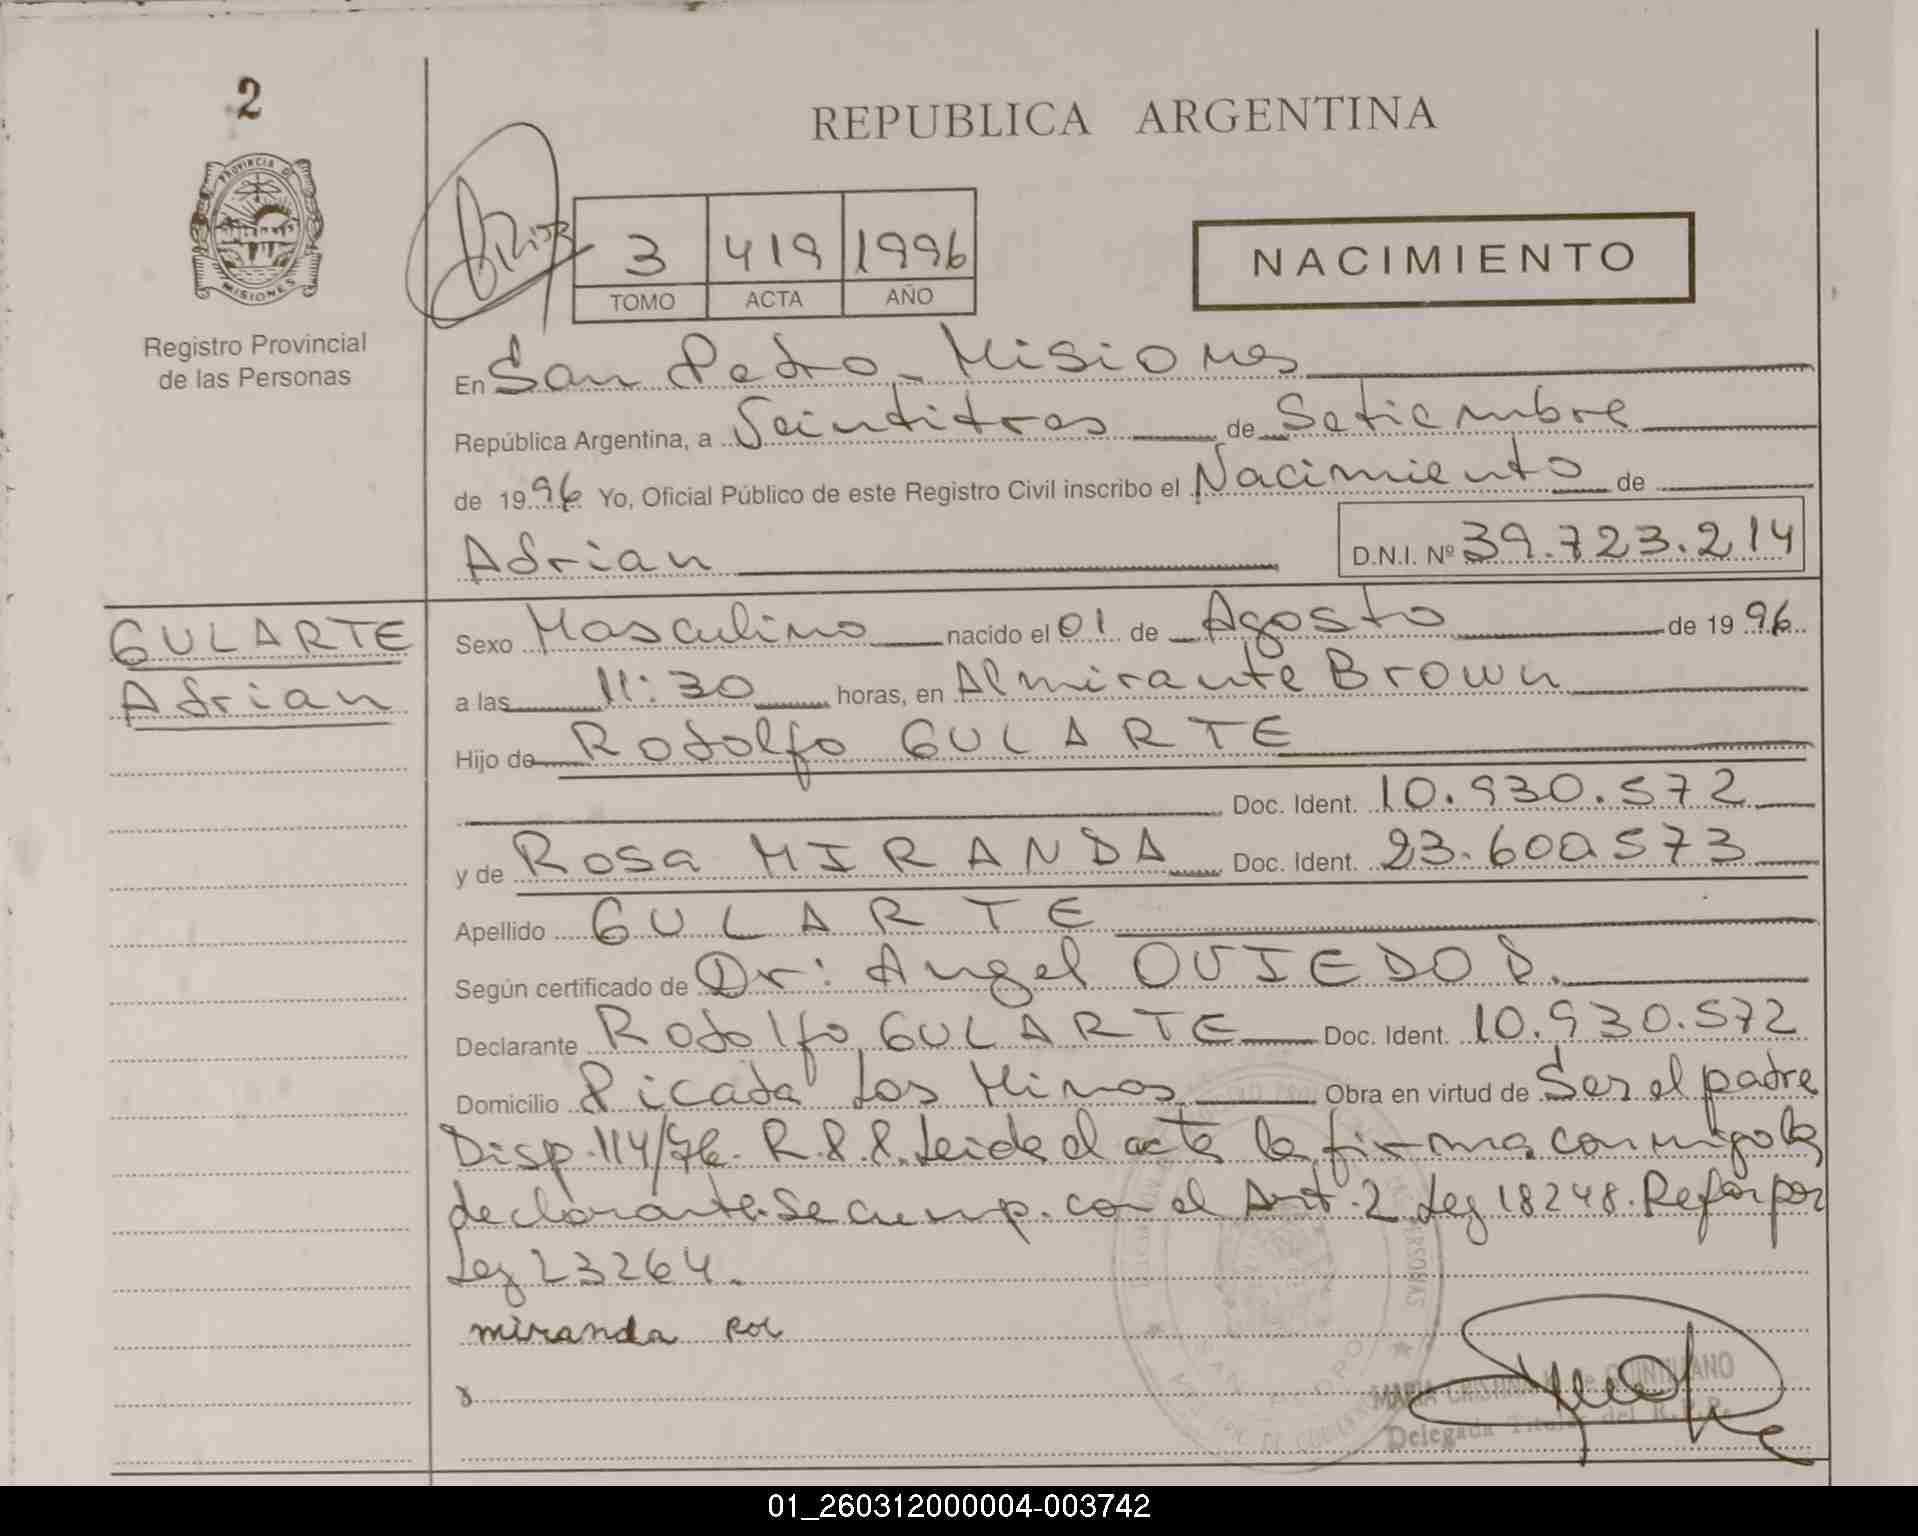 2
REPUBLICA ARGENTINA
PROVINCIA D
MISIONES
3 419 1996
TOMO ACTA AÑO
NACIMIENTO
Registro Provincial
de las Personas
En San Pedro Misiones
República Argentina, a Veintitres de Setiembre
de 1996 Yo, Oficial Público de este Registro Civil inscribo el Nacimiento de
Adrian D.N.I. Nº 39.723.214
GULARTE
Adrian
Sexo Masculino nacido el 01 de Agosto de 1996
a las 11:30 horas, en Almirante Brown
Hijo de Rodolfo GULARTE
Doc. Ident. 10.930.572
y de Rosa MIRANDA Doc. Ident. 23.600.573
Apellido GULARTE
Según certificado de Dr: Angel OVIEDO D.
Declarante Rodolfo GULARTE Doc. Ident. 10.930.572
Domicilio Picada Los Minos Obra en virtud de Ser el padre
Disp. 114/76. R.P.P. Leida el acta la firma conmigo la
declarante. Se cump. con el Art. 2 Ley 18248. Refor por
Ley 23264.
miranda
MARIA CRISTINA de QUINTILIANO
Delegada Titular del R.P.P.
SAN PEDRO
01_260312000004-003742